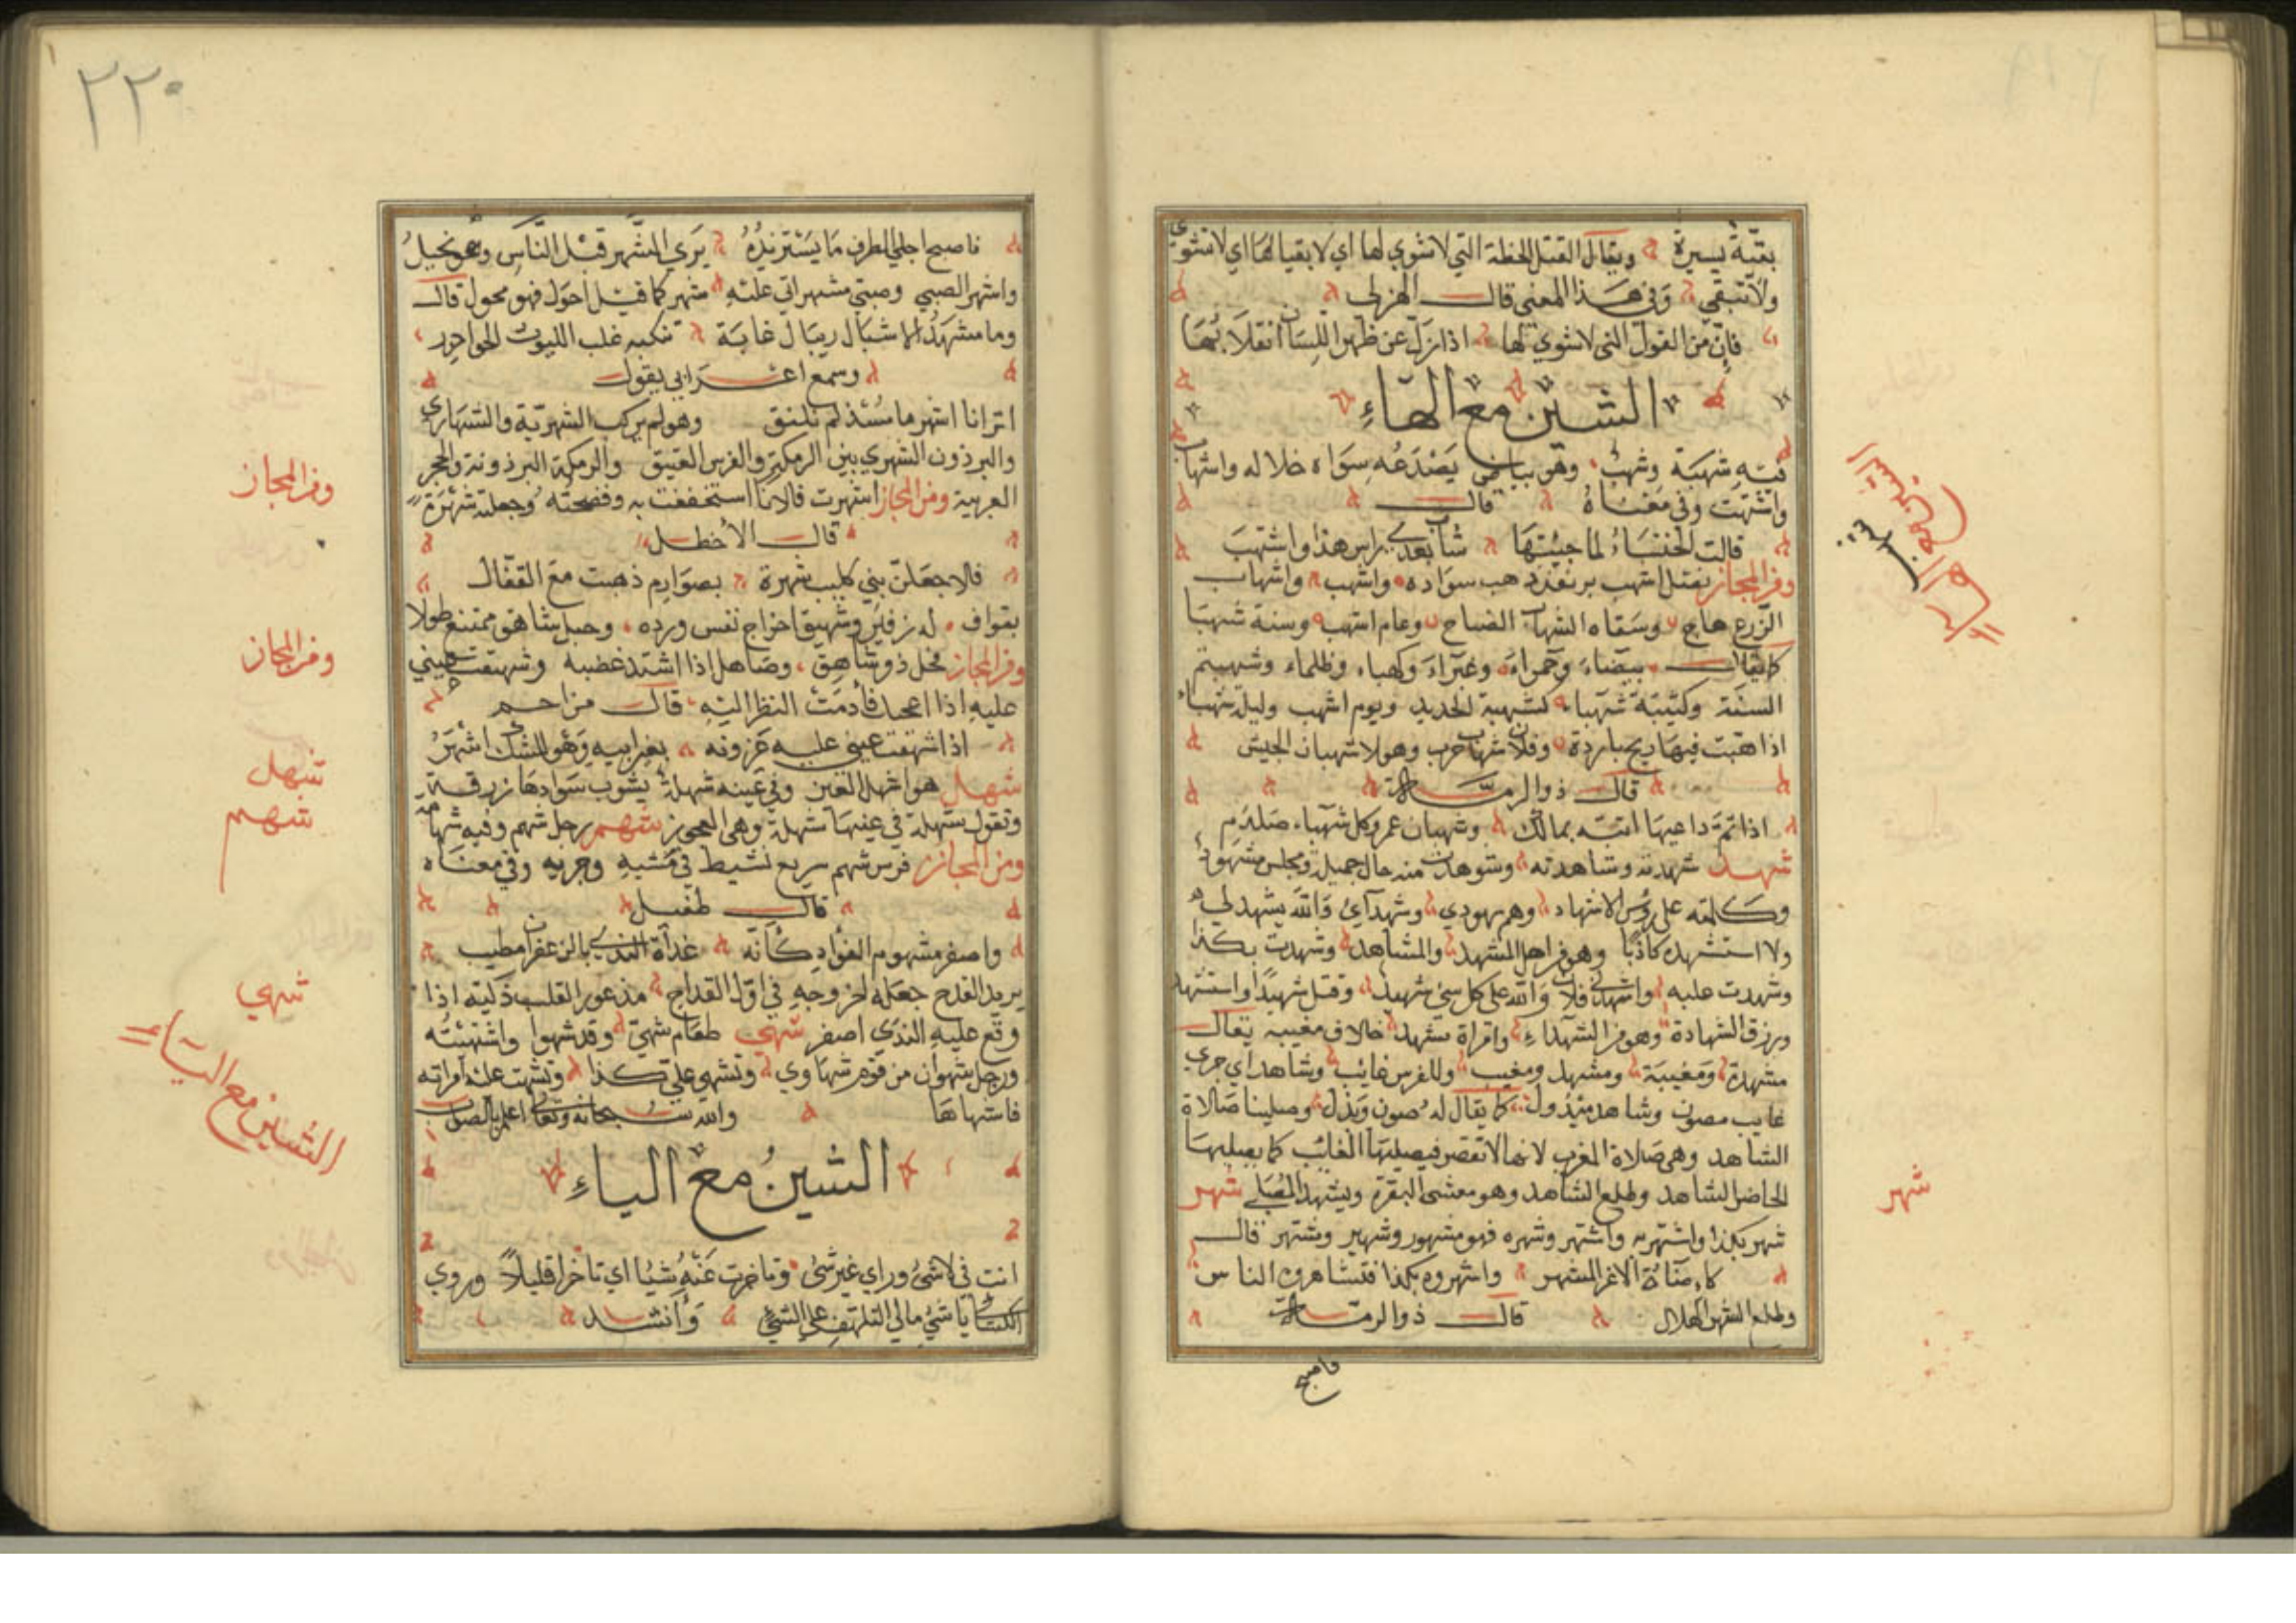 بقيّة يسيرة ويقال القتل الخطة التي لا شوي لها اي لا بقيا لها اي لا تشوي
ولا تبقي وفي هذا المعنى قال الهزلي
فإن من القول التي لا شوي لها اذا زل عن ظهر اللسان انفلاتها
الشين مع الهاء
فيه شهبة وشهب وهو بياض يصدعه سواد خلاله واشهاب
واشتهب وفي معناه قال
قالت الخنساء لما جئتها شاب بعدي راس هذا واشتهب
ومن المجاز اشهب واشهاب
الزرع هاج وسقاه الشهاب الضياح وعام اشهب وسنة شهبا
كما يقال بيضاء وحمراء وغبراء وكهباء وظلماء
السنة وكتيبة شهباء لشهبة الحديد ويوم اشهب وليلة شهباء
اذا هبت فيها ريح باردة وفلان شهاب حرب وهولا شهبان الجيش
قال ذوالرمة
اذا داعيها اتته بمالك وشهبان عمرو كل شهباء صلدم
شهد شهدته وشاهدته وشوهدت منه حال جميلة ومجلس مشهود
وكلمته على رؤس الاشهاد وهم شهودي وشهدآئ والله يشهد لي
ولا استشهده كاذبا وهو من اهل المشهد والمشاهد وشهدت بكذا
وشهدت عليه واشهدني فلان والله على كل شئ شهيد وقتل شهيدا واستشهد
ورزق الشهادة وهو من الشهداء وامراة مشهد خلاف مغيبة يقال
مشهدة ومغيبة ومشهد ومغيب وللفرس غائب وشاهد اي جري
غايب مصون وشاهد مبذول كما يقال له صون وبذل وصلينا صلاة
الشاهد وهي صلاة المغرب لانها لا تقصر فيصليها الغائب كما يصليها
الحاضر الشاهد وطلع الشاهد وهو ويشهد المصلي شهر
شهر بكذا واشتهر به واشتهر وشهره فهو مشهور وشهير ومشتهر قال
كاءضآة الاغر المشهر واشهروه بكذا فتشاهره الناس
وطلع الشهر الهلال قال ذوالرمة
فاصبح
الشين مع الهاء
شهر
٢٢٠
فاصبح اجلي الطرف ما يستزيده يري الشهر قبل الناس وهو نحيل
واشهر الصبي وصبي مشهر اتي عليه شهر كما قيل احول فهو محول قال
وما مشهد الاشبال ريبال غابة تنكبه غلب الليوث الحوادر
وسمع اعرابي يقول
اترانا اشهر ما مسند لم نلتق وهو لم يركب الشهرية والشهاري
والبرذون الشهري بين الرمكة والفرس العتيق والرمكة البرذونة والحجر
العربية ومن المجاز اشهرت فلانا استخففت به وفضحته وجعلته شهرة
قال الاخطل
فلاجعلن بني كليب شهرة بصوارم ذهبت مع القفال
بقواف له زفير وشهيق اخراج نفس ورده وجبل شاهق ممتنع طولا
ومن المجاز فحل ذو شاهق وصاهل اذا اشتد غضبه وشهقت عيني
عليه اذا اعجبك فأدمت النظر اليه قال مزاحم
اذا شهقت عيني عليه عزوته بغير ابيه
شهل هو اشهل العين وفي عينه شهلة يشوب سوادها زرقة
وتقول شهلة في عينها شهلة وهي العجوز شهم رجل شهم وفيه شهامة
ومن المجاز فرس شهم سريع نشيط في مشيه وجريه وفي معناه
قال طفيل
واصفر مشهوم الفؤاد كأنه غداة الندى بالزعفران مطيب
يريد القدح جعله لخروجه في اول القداح مذعور القلب ذكيه اذا
وقع عليه الندي اصفر شهي طعام شهي وقد شهوا واشتهيته
ورجل شهوان من قوم شهاوي وتشهي علي كذا وتشهت عليه امراته
فاشهاها والله سبحانه وتعالى اعلم بالصواب
الشين مع الياء
انت في لاشئ وراي غير شئ وتاخرت عنه شيئا اي تاخرا قليلا وروي
الكسائي يا شئ مالي التلهف على الشئ وأنشد
ومن المجاز
ومن المجاز
شهل
شهم
شهي
الشين مع الياء